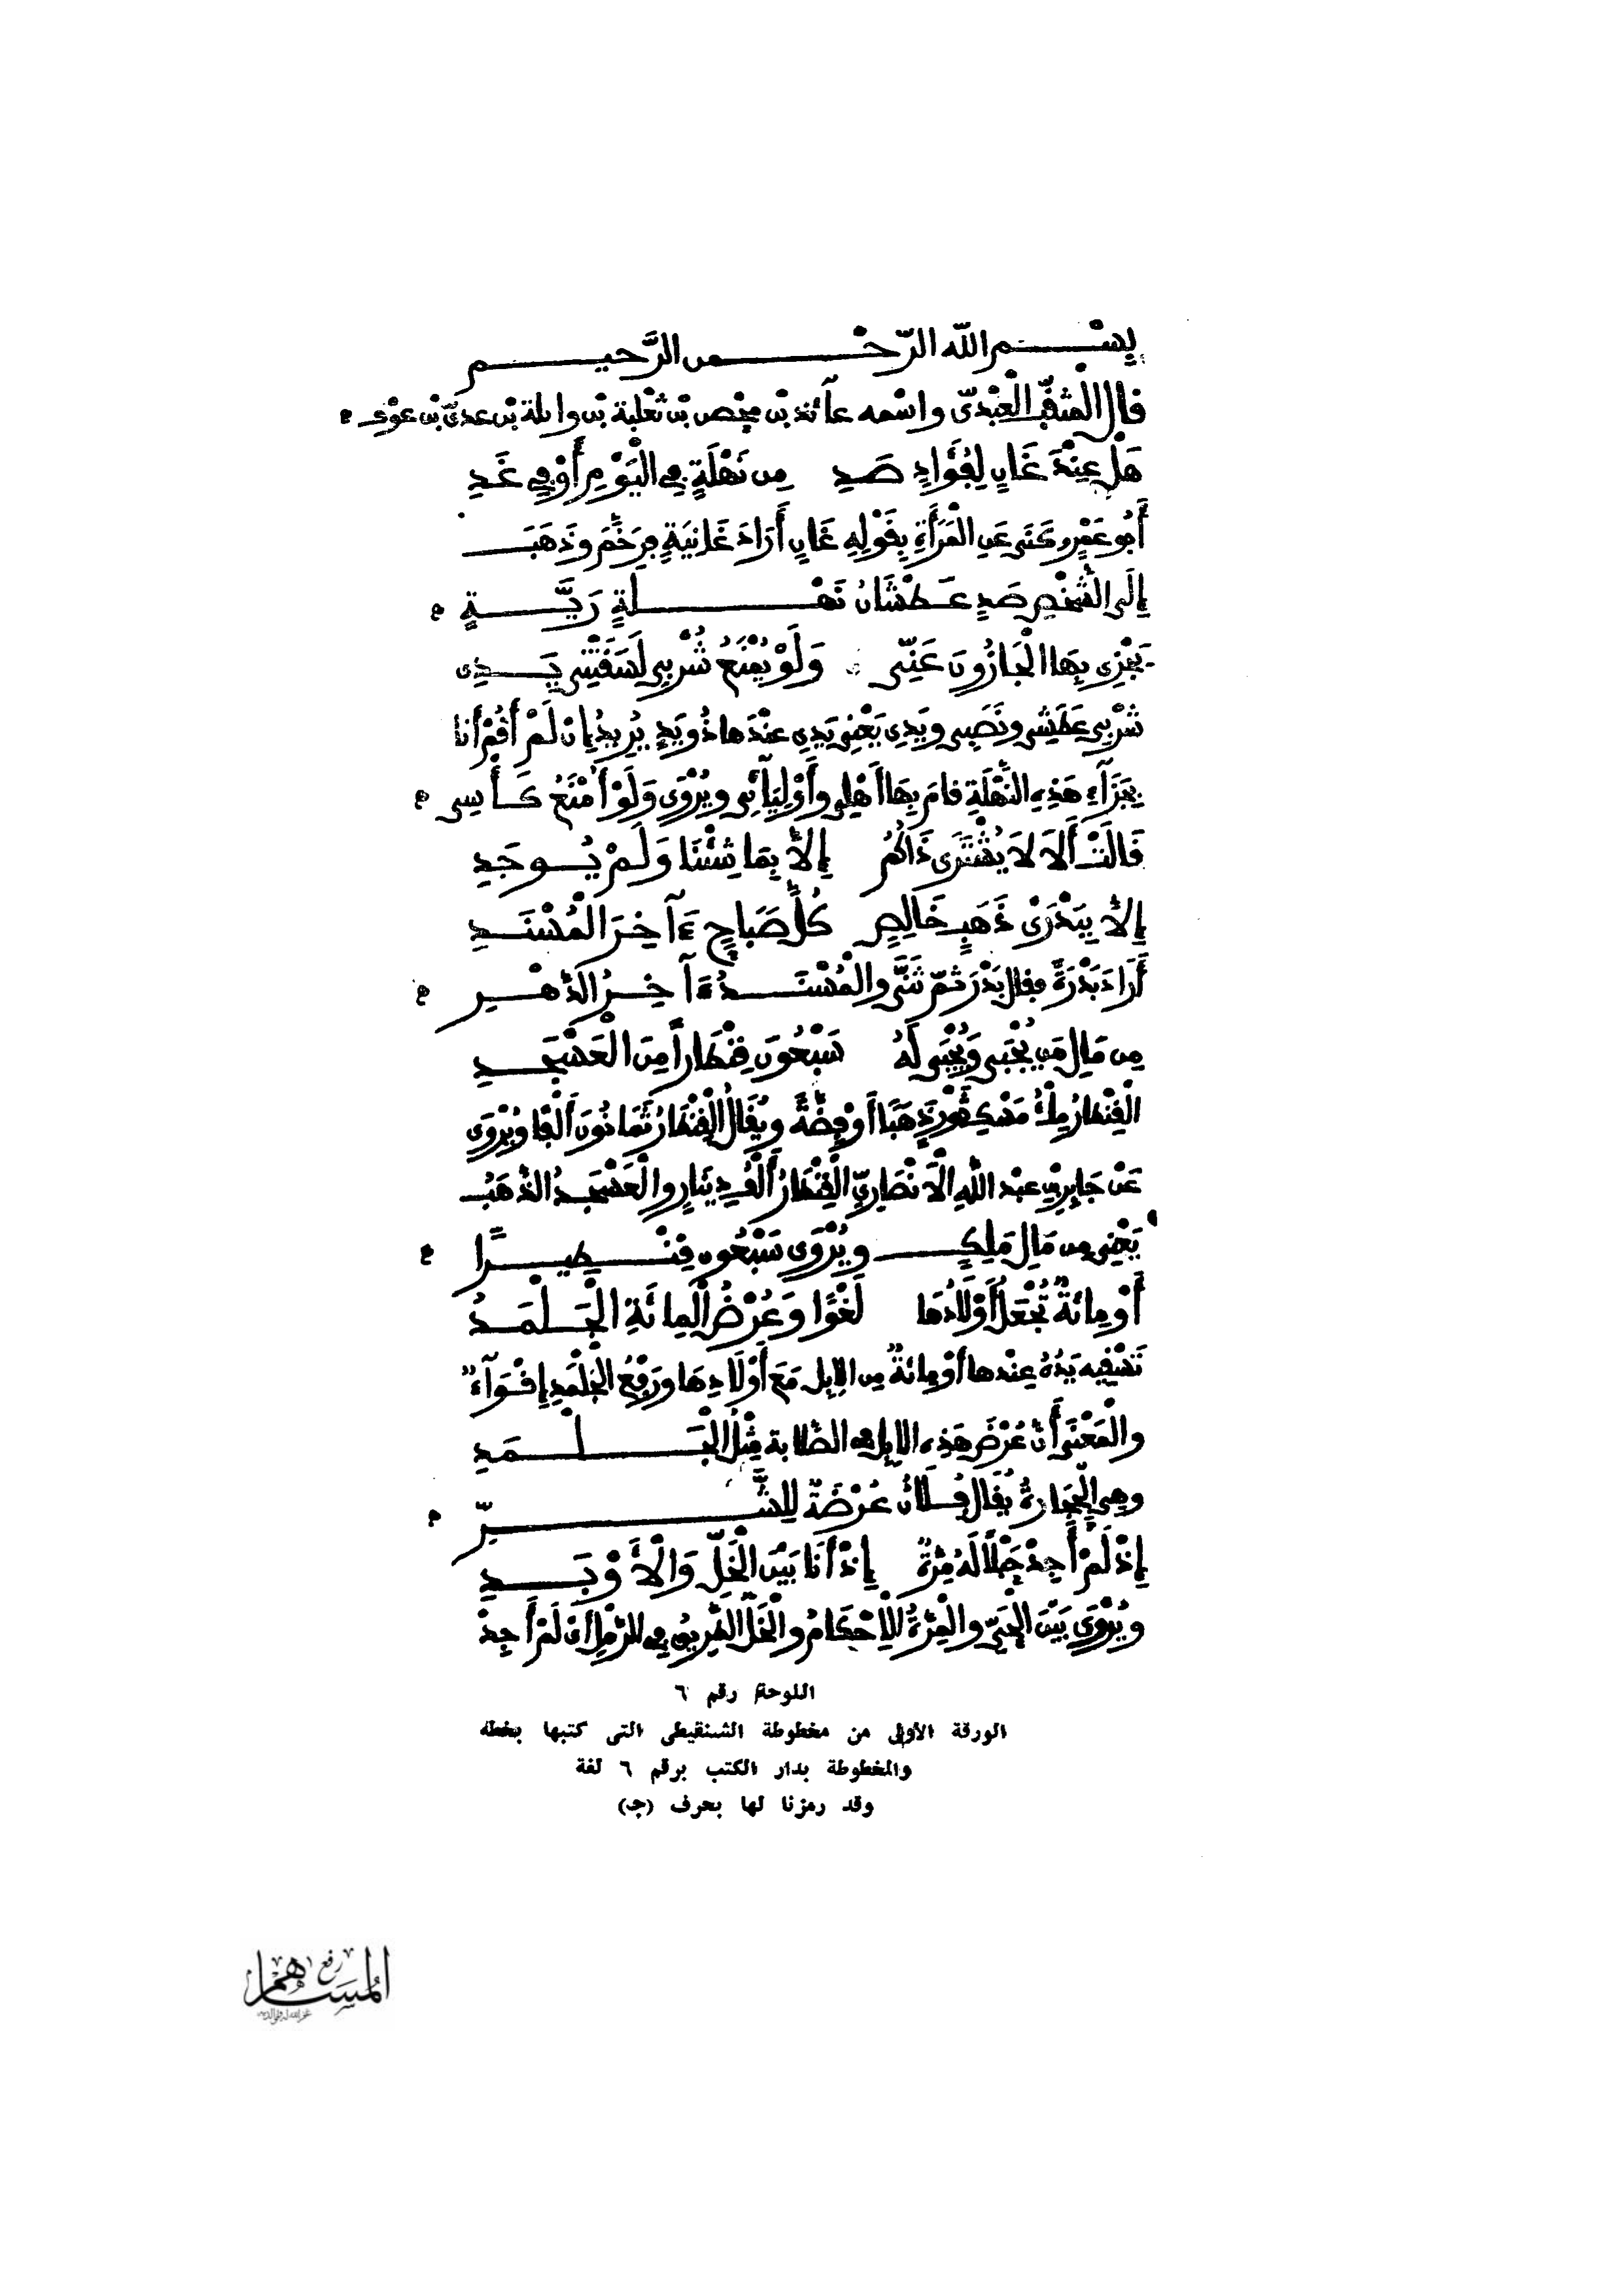 بِسْمِ اللّه الرّحْمن الرَّحيم
قال المثقّب الْعَبْدىّ واسْمه عآئذ بْن محْصن بْن ثعْلبة بْن واثلة بْن عدىّ بْن عوْف
هَلْ عِنْدَ غَانٍ لِفُؤَادٍ صَدِ مِن نَهْلَةٍ فِى الْيَوْمِ أَوْ فِى غَدِ
أَبُو عَمْرٍو كَنَى عَنِ الْمَرْأَةِ بِقَوْلِهِ غَانٍ أَرَادَ غَانِيَةٍ فَرَخَّمَ وذَهَبَ
إِلَى الشَّخْصِ صَدٍ عَطْشَانُ نَهْلَةٍ رَيَّةٍ
يَجْزِى بِهَا الْجَازُونَ عَنِّى وَلَوْ يُمْنَعُ شُرْبِى لَسَقَتْنِى يَدِى
شُرْبِى عَطَشِى ونَصَبِى ويَدِى يَعْنِى يَدِى عِنْدَهَا ذُو يَدٍ يُرِيدُ إِنْ لَمْ أَقُمْ أَنا
بِجَزَآءِ هَذِهِ النَّهْلَةِ قامَ بِهَا أَهْلِى وأَوْلِيَآئِى ويُرْوَى وَلَوْ أُمْنَعُ كَأْسِى
قَالَتْ أَلَا لَا يُشْتَرَى ذَاكُمُ إِلَّا بِمَا شِئْنَا وَلَمْ يُوجَدِ
إِلَّا بِبَدْرَىْ ذَهَبٍ خَالِصٍ كُلَّ صَبَاحٍ ءَآخِرَ الْمُسْنَدِ
أَرَادَ بَدْرَةً فقال بَدْرَ ثمّ ثَنَّى والْمُسْنَدُ ءَآخِرُ الدَّهْرِ
مِن مَالِ مَن يُجْبَى وَيُجْبَى لَهُ سَبْعُونَ قِنْطَاراً مِنَ الْعَسْجَدِ
الْقِنْطَارُ مِلْءُ مَسْكِ ثَوْرٍ ذَهَبًا أَوْ فِضَّةً ويُقَالُ الْقِنْطَارُ ثَمَانُونَ أَلْفًا ويُرْوَى
عَنْ جَابِرِ بْنِ عبْد اللَّهِ الْأَنْصَارِىِّ الْقِنْطَارُ أَلْفُ دِينَارٍ والْعَسْجَدُ الذَّهَبُ
يَعْنِى مِن مَالِ مَلِكٍ ويُرْوَى سَبْعُون قِنْطِيرًا
أَوْ مِائَةٌ تُجْعَلُ أَوْلَادُهَا لَغْوًا وَعُرْضُ الْمِائَةِ الْجَلْمَدُ
تَسْقِيهِ يَدُهُ عِنْدها أوْ مِائةٌ مِن الإبل مَعَ أَوْلَادِهَا ورَفْعُ الْجَلْمَدِ إِقْوَآءٌ
والْمَعْنَى أَنَّ عُرْضَ هَذِه الإبل فى الصّلابة مِثْلُ الْجَلْمَدِ
وهِى الْحِجَارةُ يُقَالُ فُلَانٌ عُرْضَةٌ لِلشَّرِّ
إِذْ لَمْ أَجِدْ حَبْلًا لَهُ مِرَّةٌ إِذْ أَنَا بَيْنَ الْخَلِّ وَالْأَوْبَدِ
ويُرْوَى بَيْنَ الْحَىِّ والْمِرَّةُ الْإِحْكَامُ والْخَلُّ الطّرِيقُ فِى الرَّمْلِ أَىْ لَمْ أَجِدْ
اللوحة رقم ٦
الورقة الأولى من مخطوطة الشنقيطى التى كتبها بخطه
والمخطوطة بدار الكتب برقم ٦ لغة
وقد رمزنا لها بحرف (ج)
رفع
المساهم